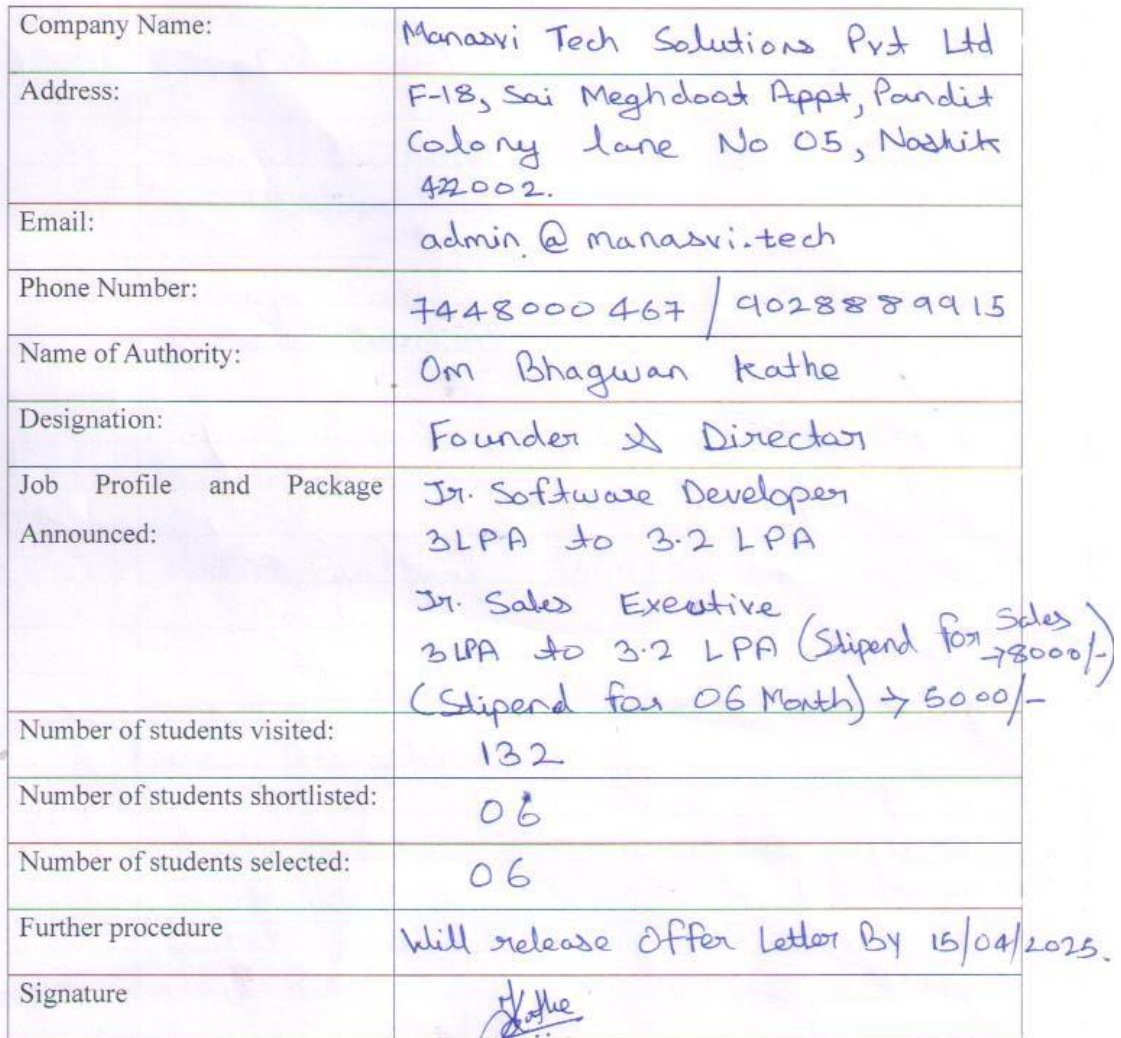 Company Name: Manasvi Tech Solutions Pvt Ltd
Address: F-18, Sai Meghdoot Appt, Pandit
Colony lane No 05, Nashik
422002.
Email: admin @ manasvi.tech
Phone Number: 7448000467 / 9028889915
Name of Authority: Om Bhagwan Kathe
Designation: Founder & Director
Job Profile and Package Jr. Software Developer
Announced: 3LPA to 3.2 LPA
Jr. Sales Executive
3 LPA to 3.2 LPA (Stipend for Sales
→8000/-)
(Stipend for 06 Month) → 5000/-
Number of students visited: 132
Number of students shortlisted: 06
Number of students selected: 06
Further procedure Will release Offer Letter By 15/04/2025.
Signature Kathe